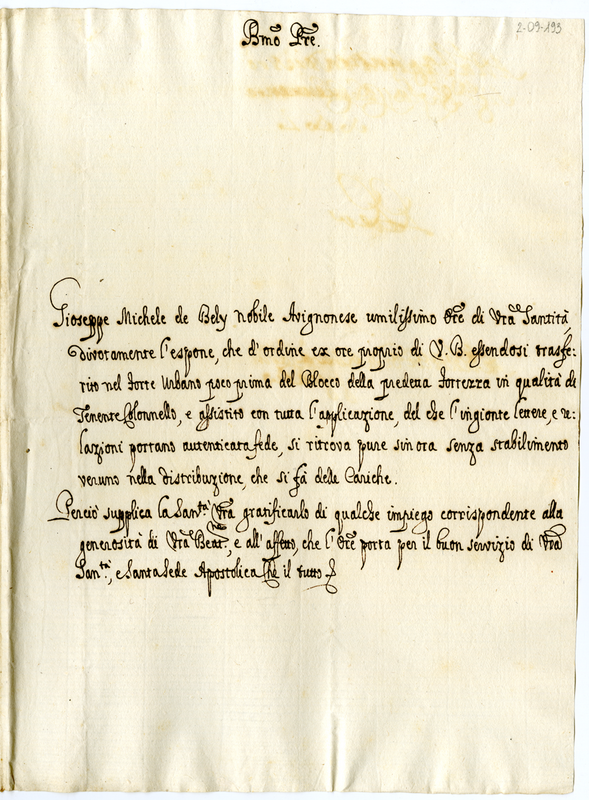 2-09-193
Bmõ Pre.
Gioseppe Michele de Bely Nobile Avignonese umilissimo Ore di Vra Santità,
divotamente l'espone, che d'ordine ex ore proprio di V. B. essendosi trasfe:
rito nel Forte Urbano poco prima del Blocco della predetta Fortezza in qualità di
Tenente Colonnello, e assistito con tutta l'applicazione, del che l'ingionte lettere, e re:
lazioni portano autenticata fede, si ritrova pure sin ora senza stabilimento
veruno nella distribuzione, che si fà delle Cariche.
Perciò supplica la San.tà Vra gratificarlo di qualche impiego corrispondente alla
generosità di Vra Beat.ne, e all'affetto, che l'Ore porta per il buon servizio di Vra
San.tà, e Santa Sede Apostolica Che il tutto